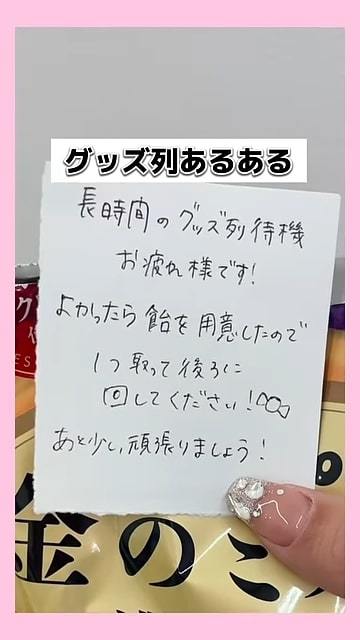 グッズ列あるある
長時間のグッズ列待機
お疲れ様です!
よかったら飴を用意したので
1つ取って後ろに
回してください!
あと少し、頑張りましょう!
金のミル